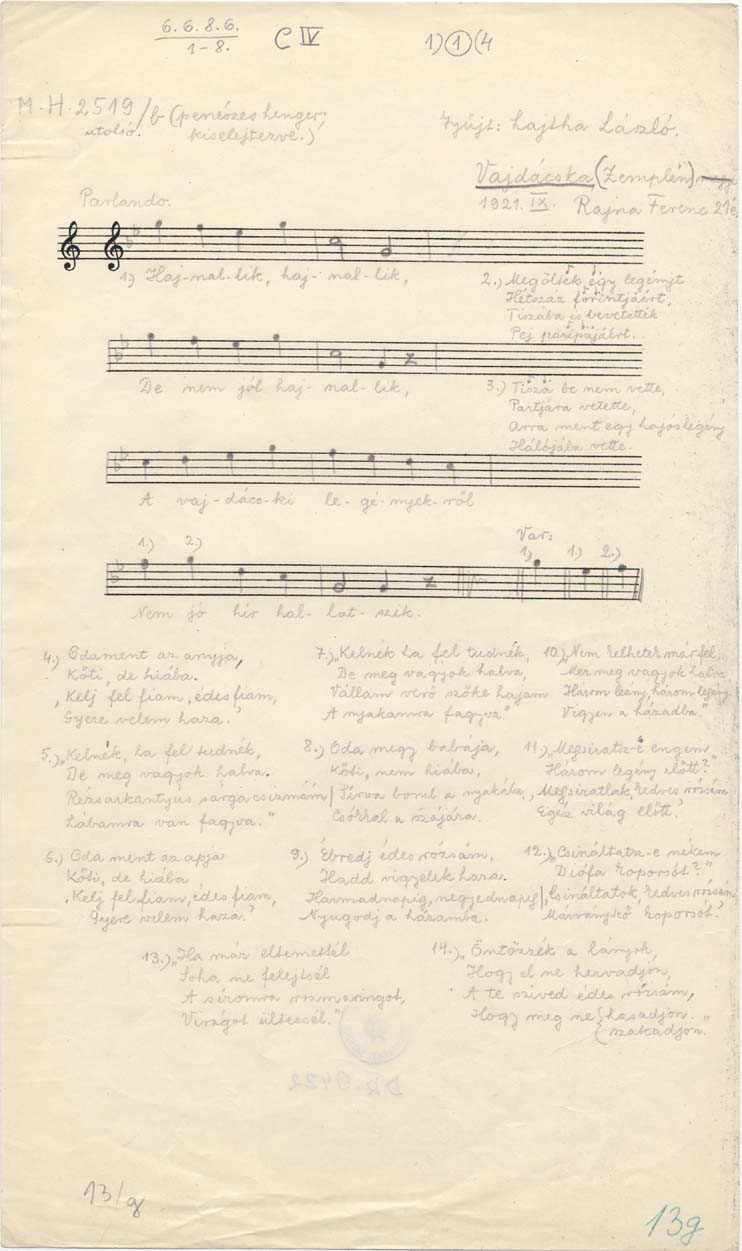 6. 6. 8. 6.
1-8.
C IV
1) 1 (4
M.H. 2519/b (penészes henger;
utolsó. kiselejtezve.)
Gyűjt: Lajtha László.
Vajdácska (Zemplén)
1921. IX. Rajna Ferenc 21é.
Parlando.
1) Haj-nal-lik, haj-nal-lik,
De nem jól haj-nal-lik,
A vaj-dács-ki le-gé-nyek-ről
1.) 2.)
Var:
1) 1.) 2.)
Nem jó hír hal-lat-szik.
2.) Megölték egy legényt
Hétszáz forintjáért,
Tiszába is bevetették
Pej paripájáért.
3.) Tisza be nem vette,
Partjára vetette,
Arra ment egy hajóslegény
Hálójába vette.
4.) Odament az anyja,
Költi, de hiába.
„Kelj fel fiam, édes fiam,
Gyere velem haza."
5.) „Kelnék, ha fel tudnék,
De meg vagyok halva.
Rézsarkantyús sárga csizmám
Lábamra van fagyva."
6.) Oda ment az apja
Költi, de hiába
„Kelj fel fiam, édes fiam,
Gyere velem haza."
7.) „Kelnék ha fel tudnék,
De meg vagyok halva,
Vállam verő szőke hajam
A nyakamra fagyva"
8.) Oda megy babája,
Költi, nem hiába,
Sírva borul a nyakába,
Csókkal a szájára.
9.) Ébredj édes rózsám,
Hadd vigyelek haza.
Harmadnapig, negyednapig
Nyugodj a házamba.
10.) „Nem kelhetek már fel,
Mer meg vagyok halva
Három leány, három legény
Vigyen a házadba."
11.) „Megsiratsz-e engem
Három legény előtt?"
„Megsiratlak, kedves rózsám
Egész világ előtt."
12.) „Csináltatsz-e nékem
Diófa koporsót?"
„Csináltatok, kedves rózsám
Márványkő koporsót."
13.) „Ha már eltemettél
Soha ne felejtsél
A síromra rozmaringot,
Virágot ültessél."
14.) „Öntözzék a lányok,
Hogy el ne hervadjon,
A te szíved édes rózsám,
Hogy meg ne {hasadjon."
{szakadjon.
13/g
13g